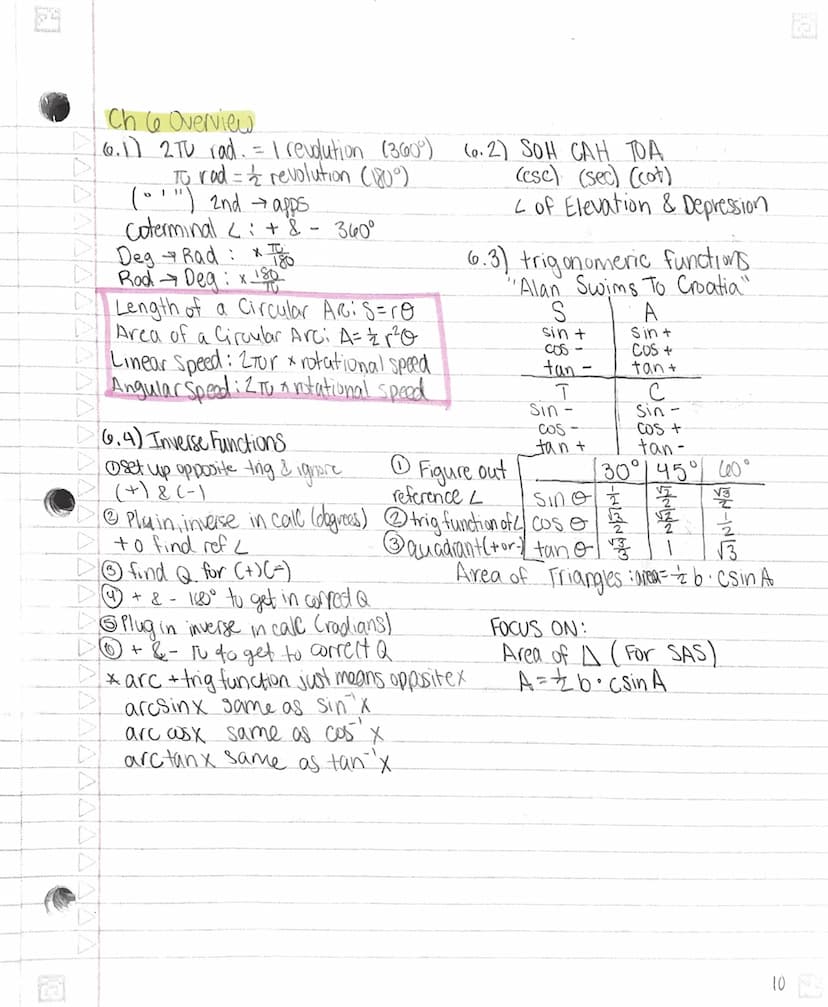 Ch 6 Overview
6.1) 2π rad. = 1 revolution (360°)
π rad = 1/2 revolution (180°)
(° ' ") 2nd → apps
Coterminal ∠: + & - 360°
Deg → Rad : × π/180
Rad → Deg : × 180/π
Length of a Circular Arc: S=rθ
Area of a Circular Arc: A=1/2 r²θ
Linear Speed: 2πr × rotational speed
Angular Speed: 2π × rotational speed
6.2) SOH CAH TOA
(csc) (sec) (cot)
∠ of Elevation & Depression
6.3) trigonomeric functions
"Alan Swims To Croatia"
S | A
sin + | sin +
cos - | cos +
tan - | tan +
T | C
sin - | sin -
cos - | cos +
tan + | tan -
6.4) Inverse Functions
① Set up opposite trig & ignore
(+) & (-)
② Plug in, inverse in calc (degrees)
to find ref ∠
③ find Q for (+)(-)
④ + & - 180° to get in correct Q
⑤ Plug in inverse in calc (radians)
⑥ + & - π to get to correct Q
* arc + trig function just means opposite x
arcsinx same as sin⁻¹x
arc cosx same as cos⁻¹x
arctanx same as tan⁻¹x
① Figure out
reference ∠
② trig function of ∠
③ quadrant (+ or -)
30° | 45° | 60°
sin θ | 1/2 | √2/2 | √3/2
cos θ | √3/2 | √2/2 | 1/2
tan θ | √3/3 | 1 | √3
Area of Triangles : area = 1/2 b · c sin A
FOCUS ON:
Area of △ (For SAS)
A = 1/2 b · c sin A
10